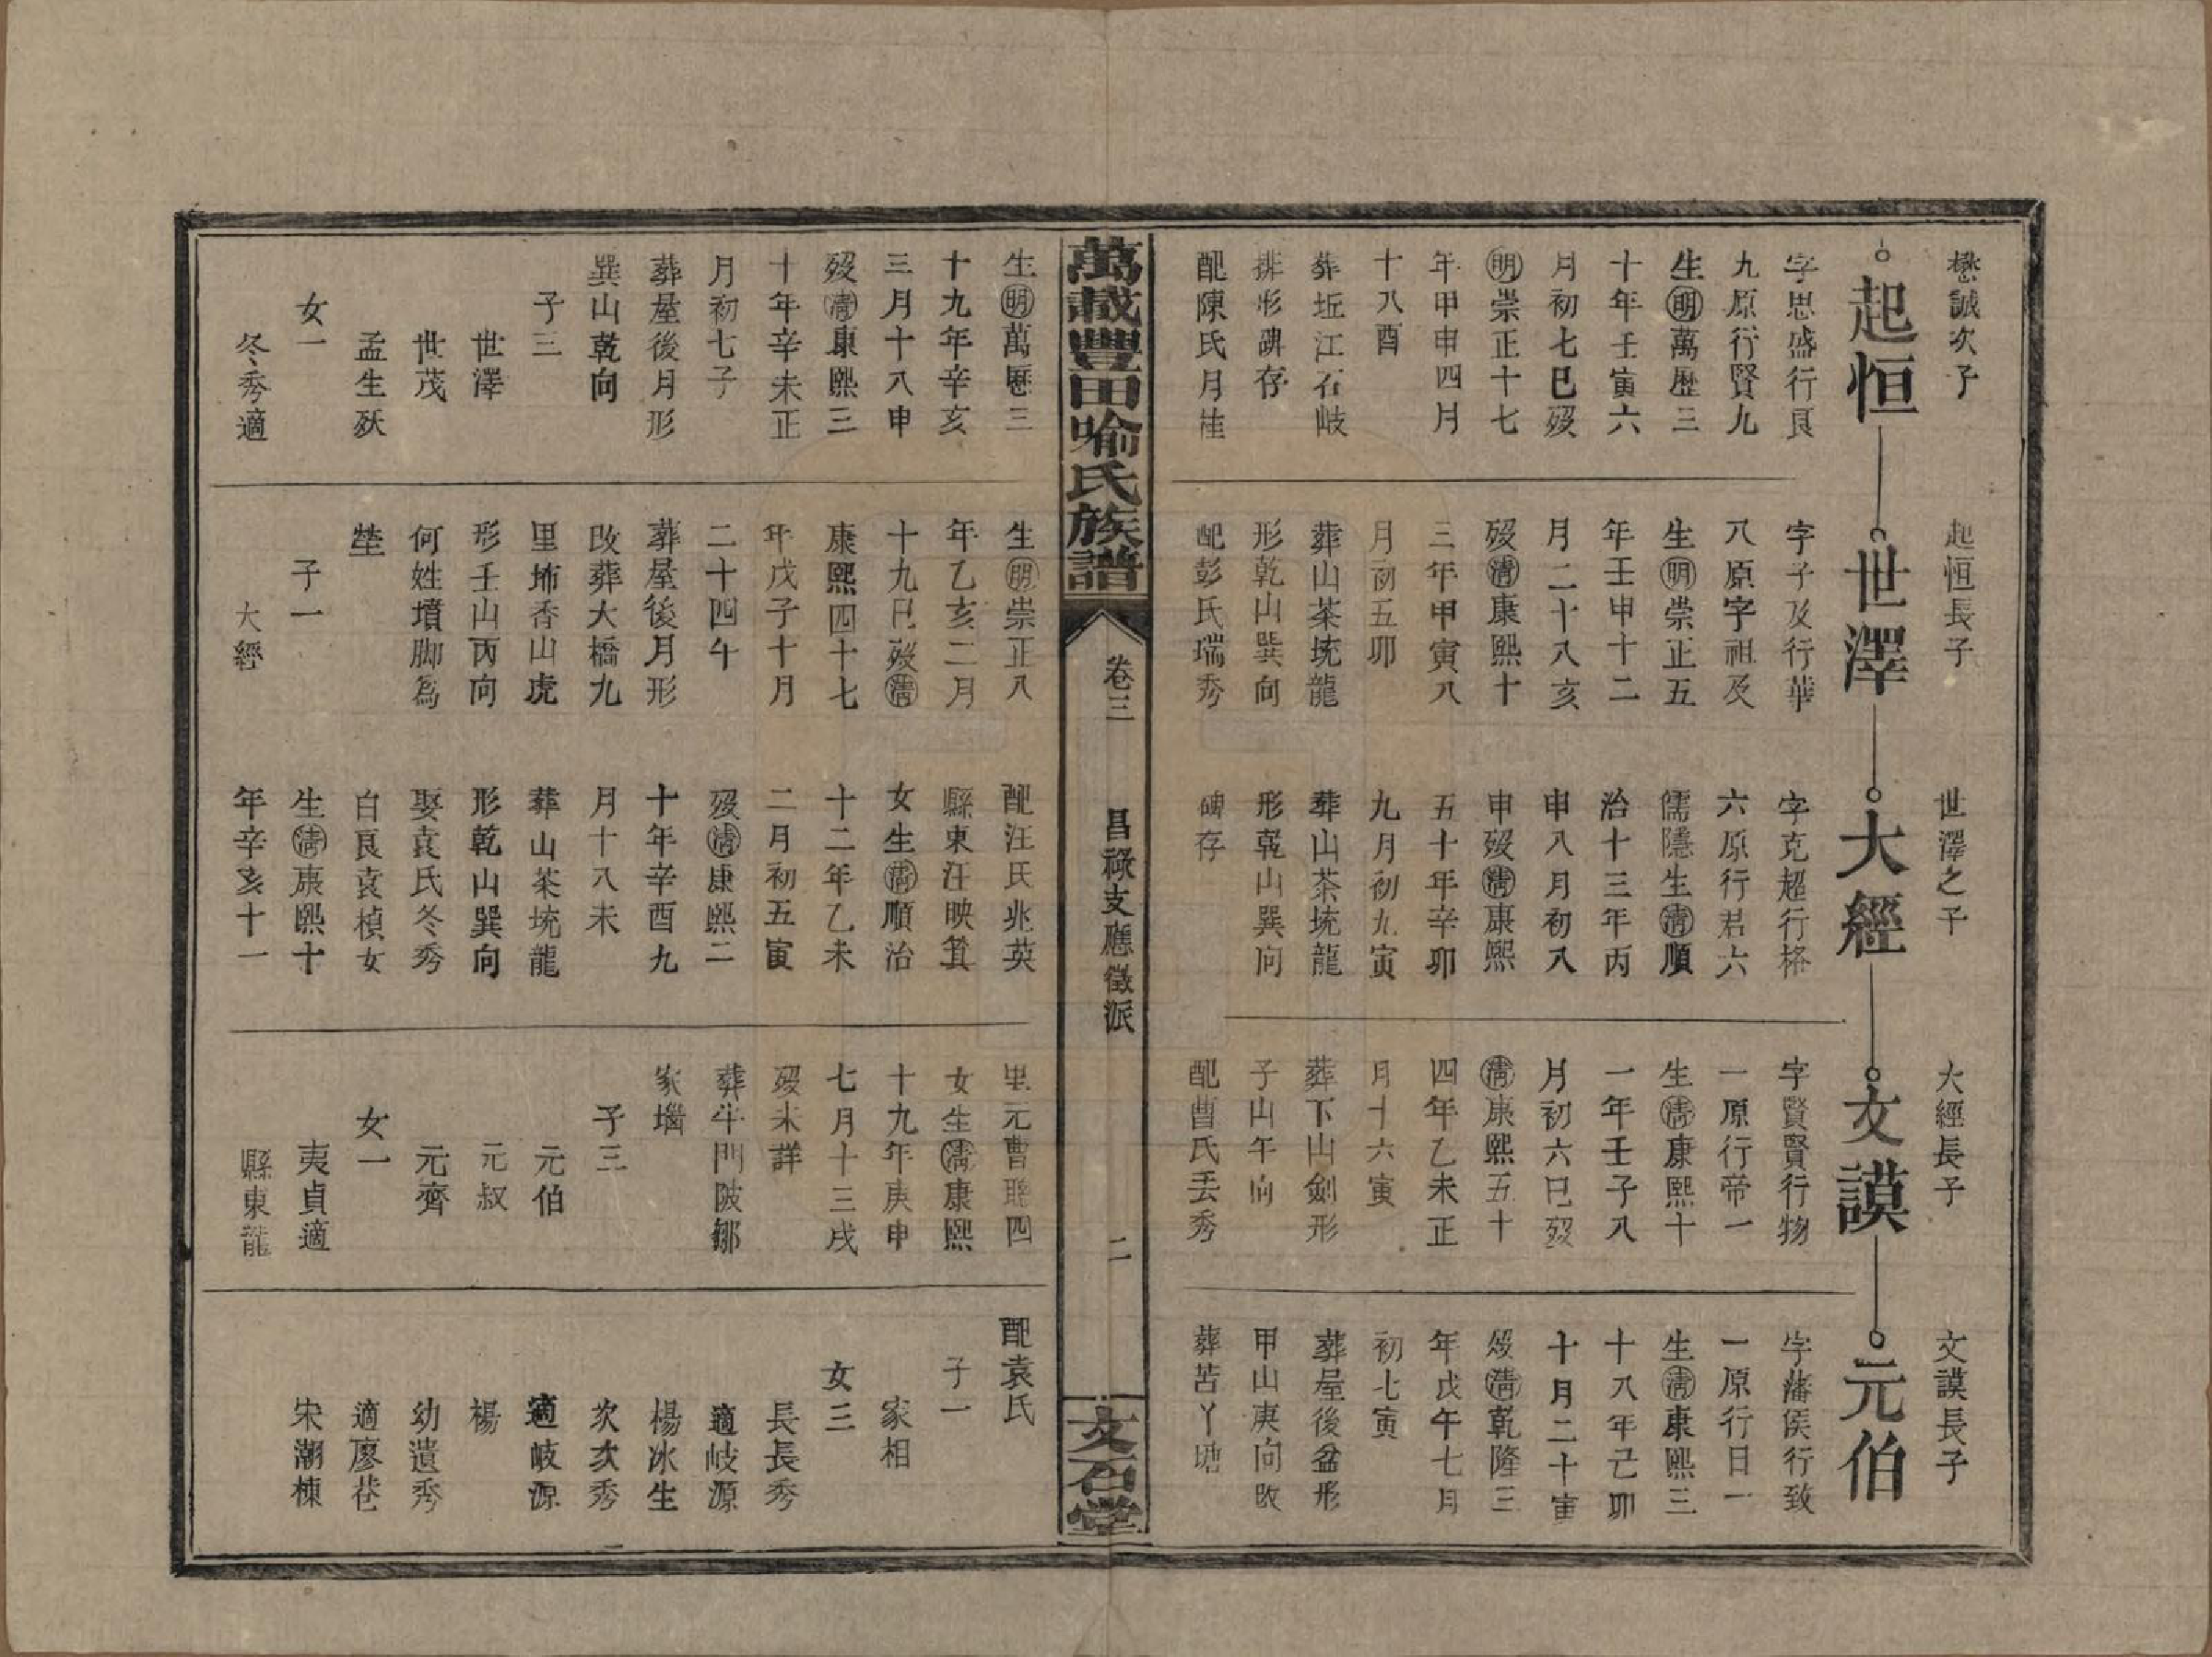 懋誠次子
起恒
字思盛行良
九原行賢九
生明萬歷三
十年壬寅六
月初七巳殁
明崇正十七
年甲申四月
十八酉
葬坵江石岐
排形碑存
配陳氏月桂
起恒長子
世澤
字子及行華
八原字祖及
生明崇正五
年壬申十二
月二十八亥
殁清康熙十
三年甲寅八
月初五卯
葬山茶垅龍
形乾山巽向
配彭氏瑞秀
世澤之子
大經
字克超行格
六原行君六
儒隱生清順
治十三年丙
申八月初八
申殁清康熙
五十年辛卯
九月初九寅
葬山茶垅龍
形乾山巽向
碑存
大經長子
文謨
字賢賢行物
一原行帝一
生清康熙十
一年壬子八
月初六巳殁
清康熙五十
四年乙未正
月十六寅
葬下山劍形
子山午向
配曹氏丟秀
文謨長子
元伯
字藩侯行致
一原行日一
生清康熙三
十八年己卯
十月二十寅
殁清乾隆三
年戊午七月
初七寅
葬屋後盆形
甲山庚向改
葬苦丫塘
萬載豐田喻氏族譜
卷三
昌祿支應徵派
二
文石堂
生明萬歷三
十九年辛亥
三月十八申
殁清康熙三
十年辛未正
月初七子
葬屋後月形
巽山乾向
子三
世澤
世茂
孟生殀
女一
冬秀適
生明崇正八
年乙亥二月
十九巳殁清
康熙四十七
年戊子十月
二十四午
葬屋後月形
改葬大橋九
里㘵香山虎
形壬山丙向
何姓墳脚為
塋
子一
大經
配汪氏兆英
縣東汪映箕
女生清順治
十二年乙未
二月初五寅
殁清康熙二
十年辛酉九
月十八未
葬山茶垅龍
形乾山巽向
娶袁氏冬秀
白良袁楨女
生清康熙十
年辛亥十一
里元曹聯四
女生清康熙
十九年庚申
七月十三戌
殁未詳
葬牛門陂鄒
家堖
子三
元伯
元叔
元齊
女一
夷貞適
縣東龍
配袁氏
子一
家相
女三
長長秀
適岐源
楊冰生
次次秀
適岐源
楊
幼遺秀
適廖巷
宋潮棟